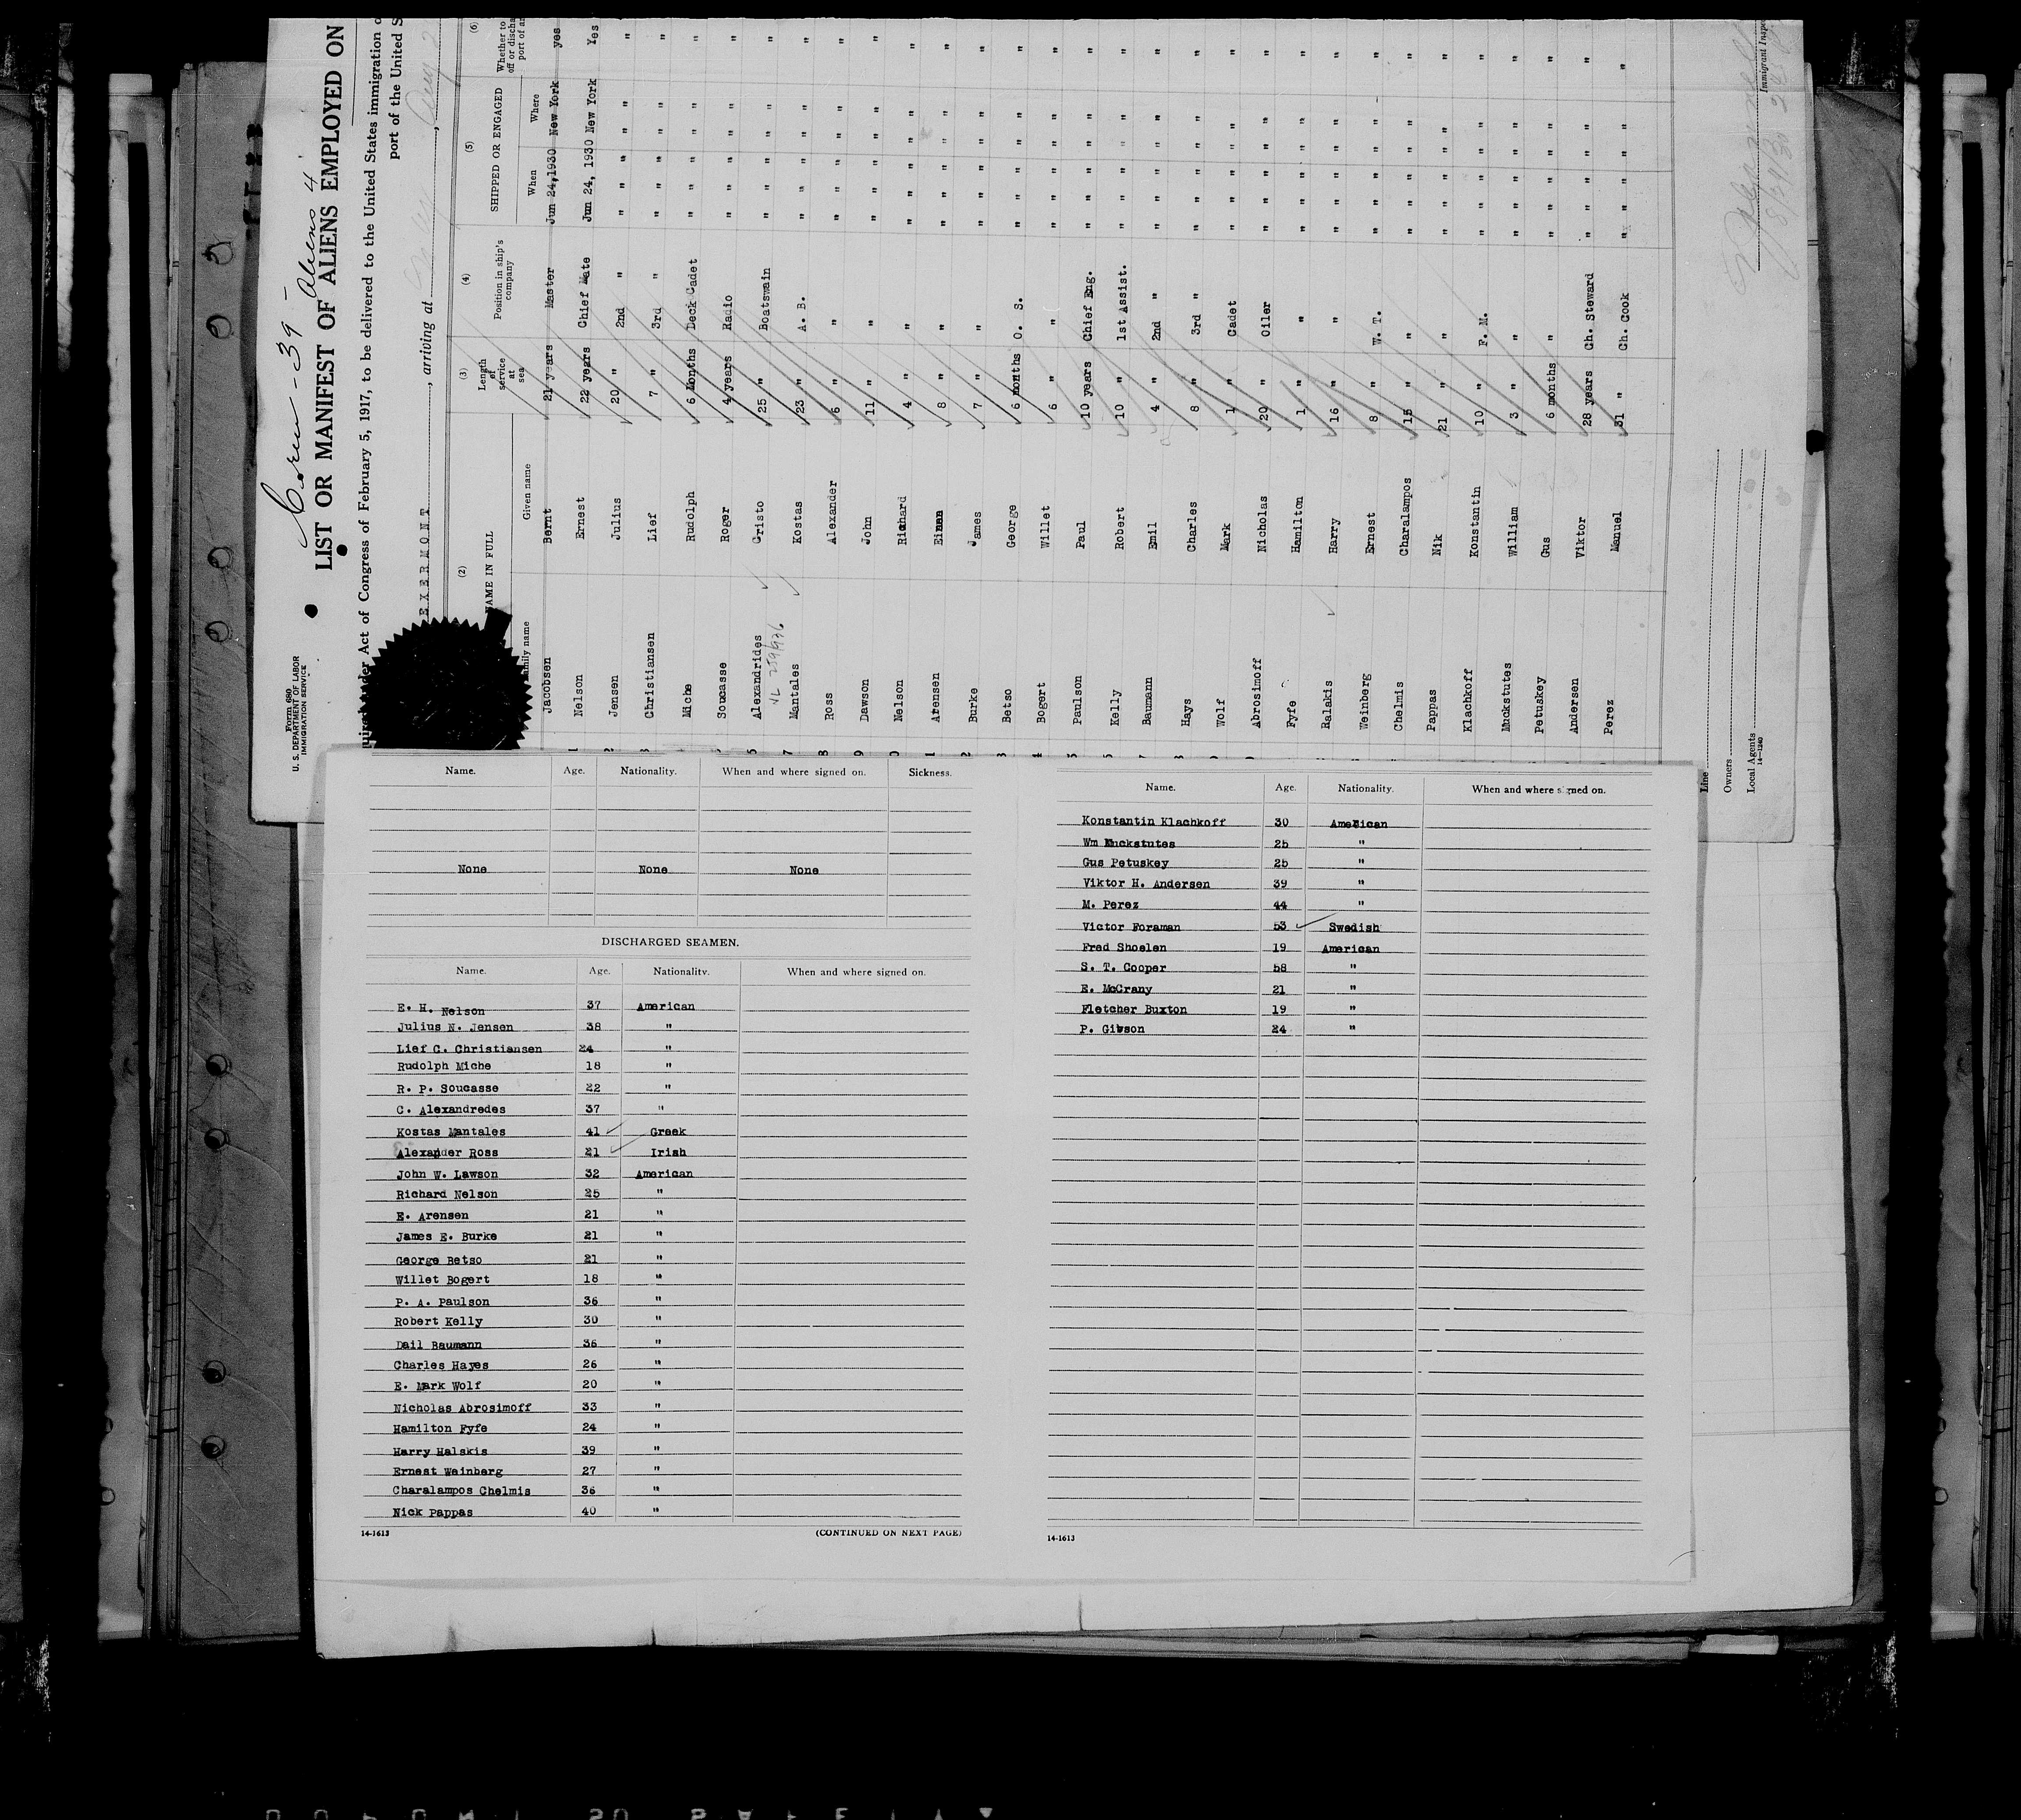 Crew - 39 -
Aliens 4
Form 680
U. S. DEPARTMENT OF LABOR
IMMIGRATION SERVICE
LIST OR MANIFEST OF ALIENS EMPLOYED ON
Act of Congress of February 5, 1917, to be delivered to the United States immigration
port of the United S
EXERMONT, arriving at
(2) (3) (4) (5) (6)
NAME IN FULL Length of service at sea Position in ship's company SHIPPED OR ENGAGED Whether to
Family name Given name When Where
Jacobsen Bernt 21 years Master Jun 24,1930 New York yes
1 Nelson Ernest 22 years Chief Mate Jun 24, 1930 New York Yes
2 Jensen Julius 20 " 2nd " " " " " " "
3 Christiansen Lief 7 " 3rd " " " " " " "
Miche Rudolph 6 Months Deck Cadet " " " " " "
Soucasse Roger 4 years Radio " " " " " "
5 Alexandrides Cristo 25 " Boatswain " " " " " "
7 Mantales Kostas 23 " A. B. " " " " " "
8 Ross Alexander 6 " " " " " " " "
9 Dawson John 11 " " " " " " " "
0 Nelson Richard 4 " " " " " " " "
1 Arensen Einan 8 " " " " " " " "
2 Burke James 7 " " " " " " " "
3 Betso George 6 months O. S. " " " " " "
4 Bogert Willet 6 " " " " " " " "
5 Paulson Paul 10 years Chief Eng. " " " " " "
Kelly Robert 10 " 1st Assist. " " " " " "
7 Baumann Emil 4 " 2nd " " " " " " "
8 Hays Charles 8 " 3rd " " " " " " "
Wolf Mark 1 " Cadet " " " " " "
Abrosimoff Nicholas 20 " Oiler " " " " " "
Fyfe Hamilton 1 " " " " " " " "
Ralakis Harry 16 " " " " " " " "
Weinberg Ernest 8 " W. T. " " " " " "
Chelmis Charalampos 15 " " " " " " " "
Pappas Nik 21 " " " " " " " "
Klachkoff Konstantin 10 " F. M. " " " " " "
Muckstutes William 3 " " " " " " " "
Petuskey Gus 6 months " " " " " " "
Andersen Viktor 28 years Ch. Steward " " " " " "
Perez Manuel 31 " Ch. Cook " " " " " "
Line
Owners
Local Agents
14-1240
Immigrant Inspec
Name. Age. Nationality. When and where signed on. Sickness.
None None None
DISCHARGED SEAMEN.
Name. Age. Nationality. When and where signed on.
E. H. Nelson 37 American
Julius N. Jensen 38 "
Lief C. Christiansen 24 "
Rudolph Miche 18 "
R. P. Soucasse 22 "
C. Alexandredes 37 "
Kostas Mantales 41 Greek
Alexander Ross 21 Irish
John W. Lawson 32 American
Richard Nelson 25 "
E. Arensen 21 "
James E. Burke 21 "
George Betso 21 "
Willet Bogert 18 "
P. A. Paulson 36 "
Robert Kelly 30 "
Dail Baumann 36 "
Charles Hayes 26 "
E. Mark Wolf 20 "
Nicholas Abrosimoff 33 "
Hamilton Fyfe 24 "
Harry Halskis 39 "
Ernest Weinberg 27 "
Charalampos Chelmis 36 "
Nick Pappas 40 "
14-1613 (CONTINUED ON NEXT PAGE)
Name. Age. Nationality. When and where signed on.
Konstantin Klachkoff 30 American
Wm Muckstutes 25 "
Gus Petuskey 25 "
Viktor H. Andersen 39 "
M. Perez 44 "
Victor Foraman 53 Swedish
Fred Shoelen 19 American
S. T. Cooper 58 "
E. McCrany 21 "
Fletcher Buxton 19 "
P. Gibson 24 "
14-1613